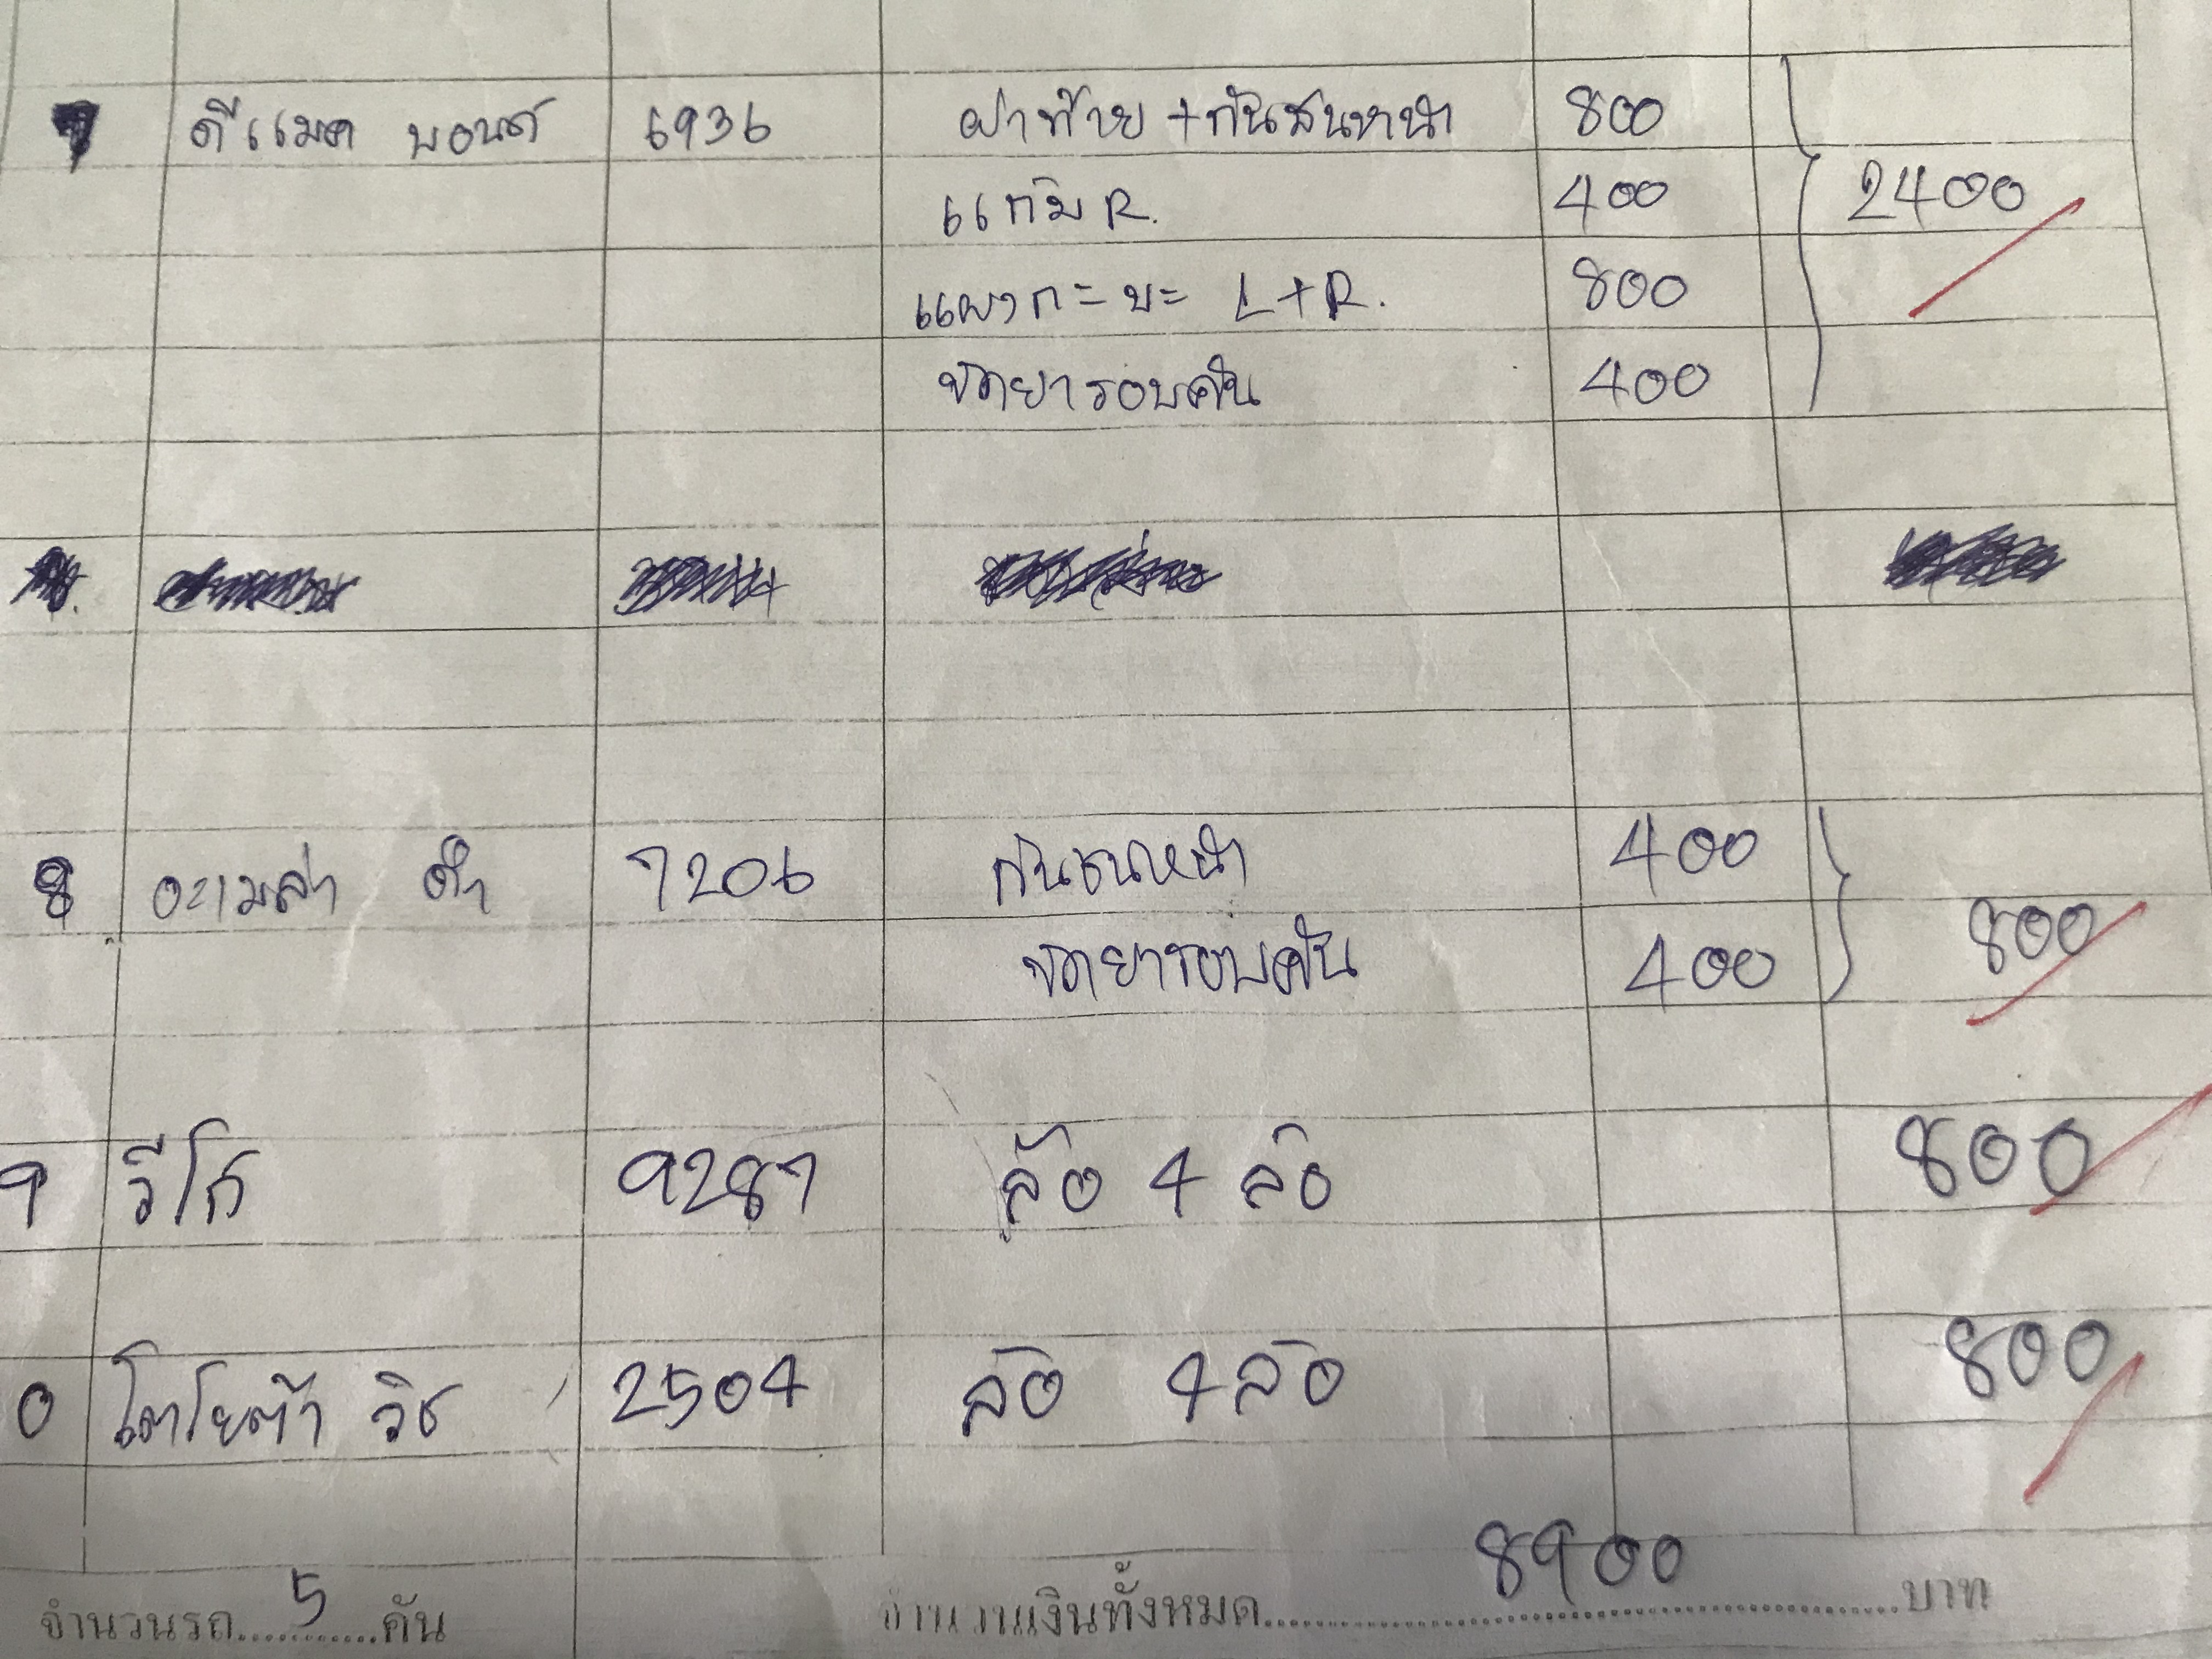 7 ดีแมค บอนด์ 6936 ฝาท้าย + กันชนหน้า 800
แก้ม R. 400 2400
แผงกะบะ L+R. 800
ขัดยารอบคัน 400
8 อะเมล่า ดำ 7206 กันชนหน้า 400
ขัดยารอบคัน 400 800
9 วีโก้ 9287 ล้อ 4 ล้อ 800
0 โตโยต้า วิช 2504 ล้อ 4 ล้อ 800
จำนวนรถ 5 คัน จำนวนเงินทั้งหมด 8900 บาท